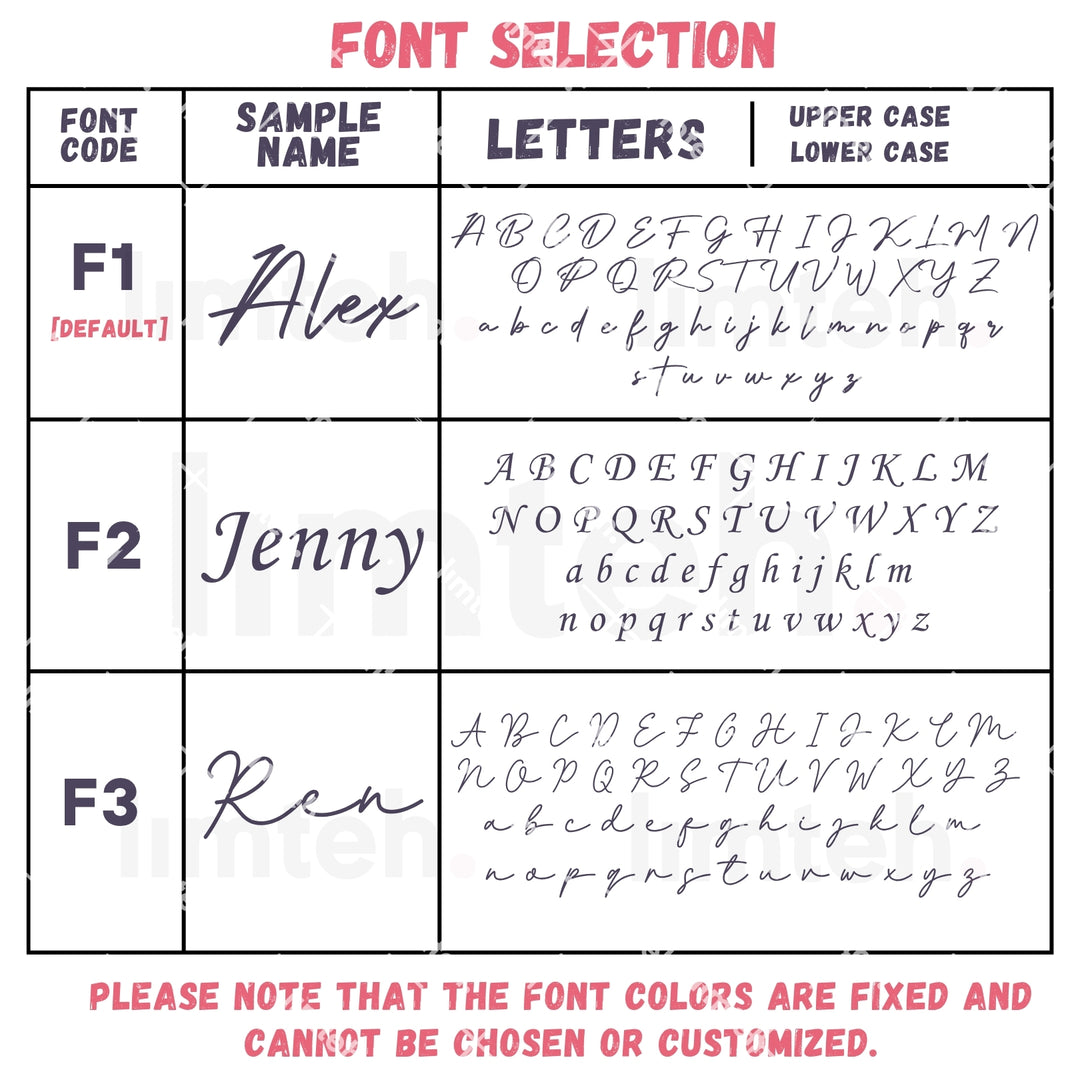 FONT SELECTION
FONT
CODE
SAMPLE
NAME
LETTERS
UPPER CASE
LOWER CASE
F1
[DEFAULT]
Alex
A B C D E F G H I J K L M N
O P Q R S T U V W X Y Z
a b c d e f g h i j k l m n o p q r
s t u v w x y z
F2
Jenny
A B C D E F G H I J K L M
N O P Q R S T U V W X Y Z
a b c d e f g h i j k l m
n o p q r s t u v w x y z
F3
Ren
A B C D E F G H I J K L M
N O P Q R S T U V W X Y Z
a b c d e f g h i j k l m
n o p q r s t u v w x y z
PLEASE NOTE THAT THE FONT COLORS ARE FIXED AND
CANNOT BE CHOSEN OR CUSTOMIZED.
limteh.
limteh.
limteh.
limteh.
limteh.